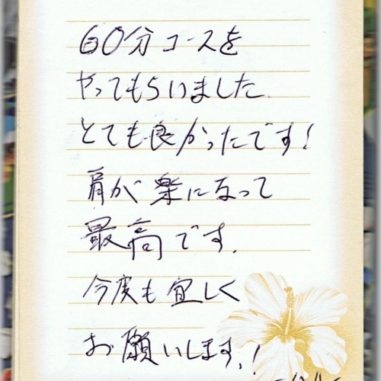 60分コースを
やってもらいました.
とても良かったです!
肩が楽になって
最高です.
今度も宜しく
お願いします.!